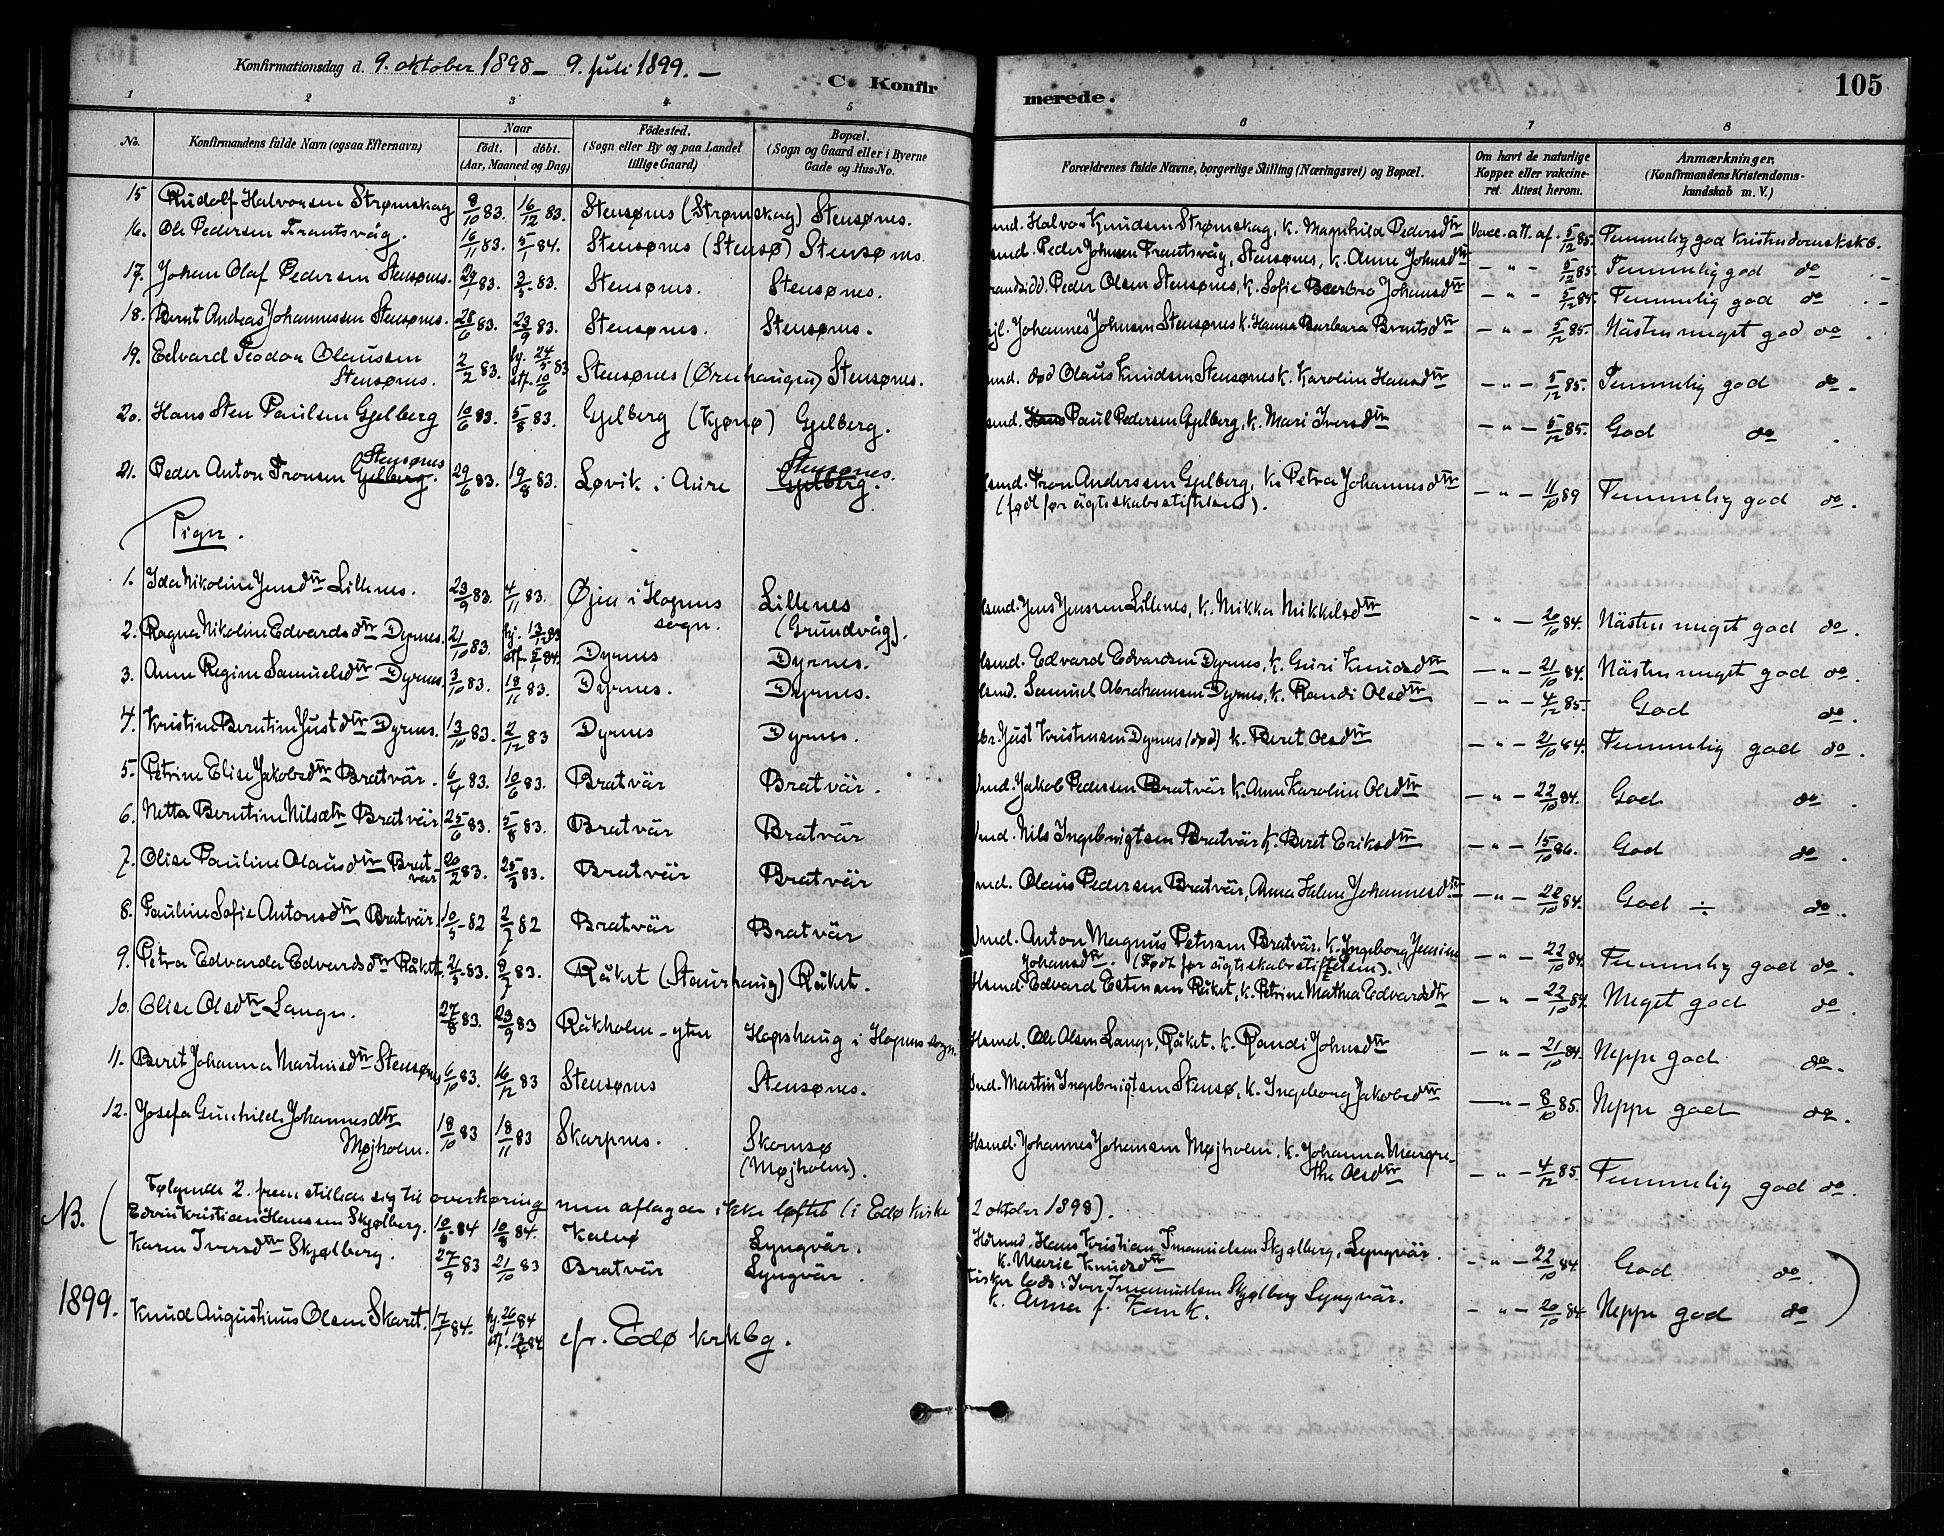 Konfirmationsdag d. 9. oktober 1898 – 9. juli 1899. –
C. Konfirmerede.
105
1 2 3 4 5 6 7 8
No. | Konfirmandens fulde Navn (ogsaa Efternavn) | Naar födt. döbt. (Aar, Maaned og Dag) | Födested. (Sogn eller By og paa Landet tillige Gaard) | Bopæl. (Sogn og Gaard eller i Byerne Gade og Hus-No. | Forældrenes fulde Navne, borgerlige Stilling (Næringsvei) og Bopæl. | Om havt de naturlige Kopper eller vakcineret. Attest herom. | Anmærkninger. (Konfirmandens Kristendomskundskab m. V.)
15 Rudolf Halvorsen Strømskag 8/10 83. 16/12 83. Stensønes (Strømskag) Stensønes. smd. Halvor Knudsen Strømskag, k. Magnhild Pedersdtr Vacc. att. af. 5/12 85. Temmelig god kristendomskskb.
16. Ole Pedersen Frantsvåg. 16/11 83. 5/1 84. Stensønes (Stensø) Stensønes. smd. Peder Johnsen Frantsvåg, Stensønes, k. Anne Johnsdtr – " – 5/12 85. Temmelig god do –
17. Johan Olaf Pedersen Stensønes. 29/1 83. 3/5 83. Stensønes. Stensønes. randsidd. Peder Olsen Stensønes, k. Sofie Barbro Johansdtr – " – 5/12 85. Temmelig god do –
18. Bernt Andreas Johannessen Stensønes. 28/6 83. 23/9 83. Stensønes. Stensønes. jl. Johannes Johnsen Stensønes k. Hanna Barbara Berntsdtr – " – 5/12 85. Nästen meget god do .
19. Edvard Teodor Olaussen Stensønes. 2/2 83. hj. 24/5 83 stf. 10/6 Stensønes (Ørenhaugen) Stensønes. smd. død Olaus Knudsen Stensønes k. Karoline Hansdtr – " – 5/12 85. Temmelig god do –
20. Hans Sten Paulsen Gjelberg 10/6 83. 5/8 83. Gjelberg (Kjønø) Gjelberg. smd. Paul Pedersen Gjelberg, k. Mari Iversdtr – " – 5/12 85. God do .
21. Peder Anton Tronsen Stensønes Gjelberg. 29/6 83. 19/8 83. Løvik i Aure Stensønes. Gjelberg. smd. Tron Anderssen Gjelberg, k. Petra Johannesdtr – " – 11/10 89 Temmelig god do .
(født før ägteskabsstiftelsen).
Piger.
1. Ida Nikoline Jensdtr Lillenes. 23/9 83. 4/11 83. Øjen i Hopens sogn. Lillenes (Grundvåg). smd. Jens Jenssen Lillenes, k. Mikka Mikkelsdtr – " – 20/10 84. Nästen meget god do.
2. Ragna Nikoline Edvardsdtr Dyrnes. 21/10 83. hj. 13/12 83 stf. 5/1 84. Dyrnes Dyrnes. smd. Edvard Edvardsen Dyrnes, k. Guri Knudsdtr – " – 21/10 84. Nästen meget god do.
3. Anne Regine Samuelsdtr Dyrnes. 3/10 83. 18/11 83. Dyrnes. Dyrnes. smd. Samuel Abrahamsen Dyrnes, k. Randi Olsdtr – " – 4/12 85. God do.
4. Kristine Berntine Justdtr Dyrnes. 13/10 83. 2/12 83 Dyrnes Dyrnes. br. Just Kristensen Dyrnes (død) k. Beret Olsdtr – " – 21/10 84. Temmelig god do.
5. Petrine Elise Jakobsdtr Bratvär. 6/4 83. 10/6 83. Bratvär Bratvär. smd. Jakob Pedersen Bratvär k. Anne Karoline Olsdtr – " – 22/10 84. God do .
6. Netta Berntine Nilsdtr Bratvär. 25/6 83. 5/8 83. Bratvär Bratvär smd. Nils Ingebrigtsen Bratvär k. Beret Eriksdtr – " – 15/10 86. God do .
7. Olise Pauline Olausdtr Bratvär 20/2 83. 25/3 83. Bratvär Bratvär smd. Olaus Pedersen Bratvär, Anna Helene Johannesdtr – " – 22/10 84. God ÷ do .
8. Pauline Sofie Antonsdtr Bratvär. 10/5 82 2/7 82 Bratvär Bratvär smd. Anton Magnus Petersen Bratvär, k. Ingeborg Jensine Johansdtr. (Født før ägteskabsstiftelsen). – " – 22/10 84. Temmelig god do .
9. Petra Edvarda Edvardsdtr Råket. 2/5 83. 8/7 83. Råket (Staurhaug) Råket. Hsmd. Edvard Estensen Råket, k. Petrine Mathea Edvardsdtr – " – 22/10 84. Meget god do .
10. Olise Olsdtr Langn. 27/8 83. 23/9 83 Råkholm – yten Hopshaug i Hopens sogn. Hsmd. Ole Olsen Langn, Råket. k. Randi Johnsdtr – " – 21/10 84. Neppe god do .
11. Beret Johanna Martinsdtr Stensønes 6/10 83. 16/12 83 Stensønes Stensønes. Ind. Martin Ingebrigtsen Stensø, k. Ingeborg Jakobsdtr – " – 8/10 85. Neppe god do .
12. Josefa Gunhild Johannesdtr Møjholm. 18/10 83 18/11 83 Skarpnes. Skomsø (Møjholm). Hsmd. Johannes Johansen Møjholm, k. Johanna Margrethe Olsdtr – " – 4/12 85. Temmelig god do .
NB. Følgende 2. fremstillede sig til overhøring men aflagde ikke løftet (i Edø kirke 2 oktober 1898).
Edvin Kristian Hanssen Skjølberg. 10/6 84 10/8 84. Kalvø Lyngvär. Hdsmd. Hans Kristian Imanuelsen Skjølberg, Lyngvär. k. Marie Knudsdtr – " – 22/10 84. God do .
Karen Iversdtr Skjølberg. 27/9 83 21/10 83 Bratvär Lyngvär. fisker lods. Iver Imanuelsen Skjølberg Lyngvär. k. Anna f. – " – 20/10 84 Neppe god do
1899. Knud Augustinus Olsen Skaret. 17/1 84. hj. 26/1 84 stf. 13/6 84 cfr. Edø krkbg.